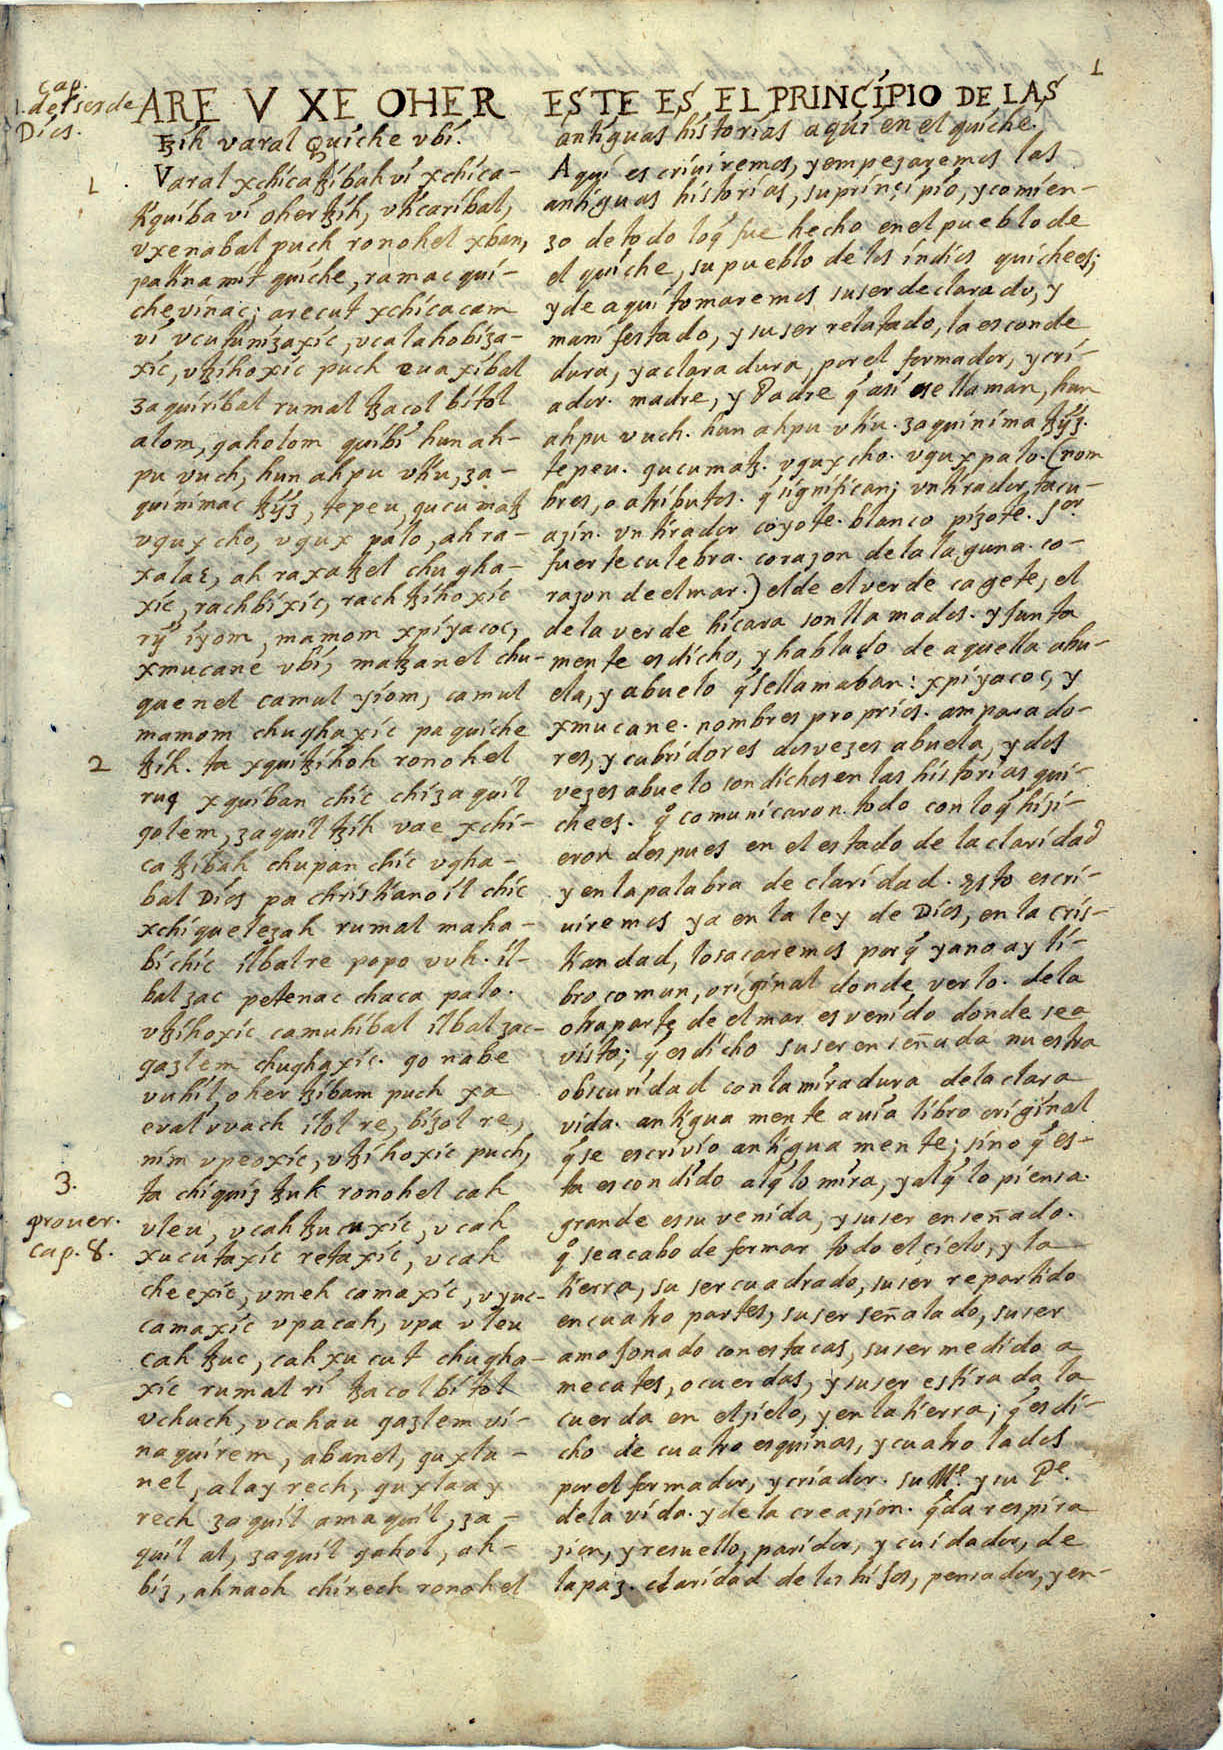 1
cap.
1. del ser de
Dios.
ARE V XE OHER
ꜩih varal Quiche vbi.
1.
Varal xchicaꜩibah vi xchica-
tiquiba vi oher ꜩih, vticaribal,
vxenabal puch ronohel xban,
pa tinamit quiche, ramac qui-
che vinac; arecut xchicacam
vi vcutunizaxic, vcalahobiza-
xic, vꜩihoxic puch euaxibal
zaquiribal rumal ꜩacol bitol
alom, qaholom quibi hun ah-
pu vuch, hun ahpu vtiu, za-
quinimac ꜩÿz, tepeu, qucumaꜩ
vqux cho, vqux palo, ah ra-
xalaꜫ, ah raxaꜩel chugha-
xic, rachbixic, rach ꜩihoxic
rÿ iyom, mamom xpiyacoc,
xmucane vbi, maꜩanel chu-
quenel camul yiom, camul
mamom chughaxic pa quiche
2
ꜩih. ta xquiꜩihoh ronohel
ruq xquiban chic chi zaquil
qolem, zaquil ꜩih vae xchi-
ca ꜩibah chupan chic vgha-
bal Dios pa christianoil chic
xchiquelezah rumal maha-
bi chic ilbal re popo vuh. il-
bal zac petenac chaca palo.
vꜩihoxic camuhibal ilbal zac-
qazlem chughaxic. qo nabe
vuhil, oher ꜩibam puch xa
eval vvach ilol re, bizol re,
nim vpeoxic, vꜩihoxic puch,
3.
ta chiquiz ꜩuk ronohel cah
prouer.
cap. 8.
vleu, vcah ꜩucuxic, vcah
xucutaxic retaxic, vcah
cheexic, vmeh camaxic, vyuc-
camaxic vpa cah, vpa vleu
cah ꜩuc, cah xucut chugha-
xic rumal ri ꜩacol bitol
vchuch, vcahau qazlem vi-
naquirem, abanel, quxla-
nel, alay rech, quxlaay
rech zaquil amaquil, za-
quil al, zaquil qahol, ah-
biz, ahnaoh chirech ronohel
ESTE ES EL PRINCIPIO DE LAS
antiguas historias aqui en el quiche.
Aqui escriuiremos, y empezaremos las
antiguas historias, su prinçipio, y comien-
zo de todo loq̃ fue hecho en el pueblo de
el quiche, su pueblo de los indios quichees;
y de aqui tomaremos su ser declarado, y
manifestado, y su ser relatado, la esconde
dura, y aclaradura, por el formador, y cri-
ador. madre, y Padre q̃ asi se llaman, hun
ahpu vuch. hun ahpu vtiu. zaquinima ꜩÿz.
tepeu. qucumaꜩ. vqux cho. vqux palo. (nom
bres, o atributos. q̃ significan; vn tirador, tacu-
azin. vn tirador coyote. blanco pizote. sor
fuerte culebra. corazon de la laguna. co-
razon de el mar.) el de el verde cagete, el
de la verde hicara son llamados. y junta
mente es dicho, y hablado de aquella abu-
ela, y abuelo q̃ se llamaban: xpiyacoc, y
xmucane. nombres proprios. amparado-
res, y cubridores dos vezes abuela, y dos
vezes abuelo son dichos en las historias qui-
chees. q̃ comunicaron. todo con loq̃ hizi-
eron despues en el estado de la claridad
y en la palabra de claridad. Esto escri-
uiremos ya en la ley de Dios, en la cris-
tiandad, lo sacaremos porq̃ ya no ay li-
bro comun, original donde verlo. de la
otra parte de el mar es venido donde sea
visto; q̃ es dicho su ser enseñada nuestra
obscuridad con la miradura de la clara
vida. antiguamente auia libro original
q̃ se escrivio antiguamente; sino q̃ es-
ta escondido alq̃ lo mira, y alq̃ lo piensa.
grande es su venida, y su ser enseñado.
q̃ se acabo de formar todo el çielo, y la
tierra, su ser cuadrado, su ser repartido
en cuatro partes, su ser señalado, su ser
amojonado con estacas, su ser medido a
mecates, o cuerdas, y su ser estirada la
cuerda en el zielo, y en la tierra; q̃ es di-
cho de cuatro esquinas, y cuatro lados
por el formador, y criador. su Mᵉ. y su Pᵉ.
de la vida. y de la creazion. q̃ da respira
zion, y resuello, paridor, y cuidador, de
la paz. claridad de los hijos, pensador, y en-